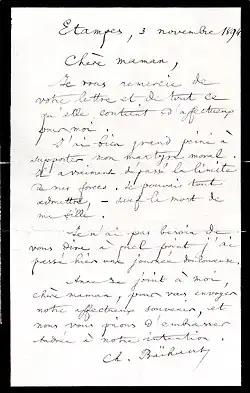 Etampes, 3 novembre 1894
Chère maman,
Je vous remercie de
votre lettre et de tout ce
qu'elle contient d'affectueux
pour moi.
J'ai bien grand peine à
supporter mon martyre moral.
Il a vraiment dépassé la limite
de mes forces. Je pouvais tout
admettre, – sauf la mort de
ma fille.
Je n'ai pas besoin de
vous dire à quel point j'ai
passé hier une journée douloureuse.
se joint à moi,
chère maman, pour vous envoyer
notre affectueux souvenir, et
nous vous prions d'embrasser
Andrée à notre intention.
Ch. Baïhaut